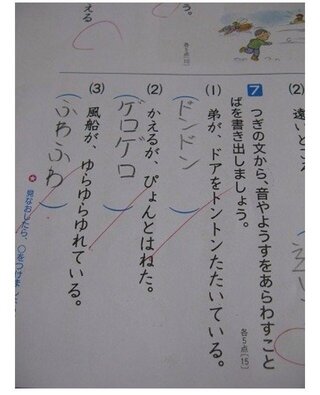 (2)
遠い
える
う。
各5点[10]
7 つぎの文から、音やようすをあらわすこと
ばを書き出しましょう。
各5点[15]
(1) 弟が、ドアをトントンたたいている。
(ドンドン)
(2) かえるが、ぴょんとはねた。
(ゲロゲロ)
(3) 風船が、ゆらゆらゆれている。
(ふわふわ)
見なおしたら、○をつけま